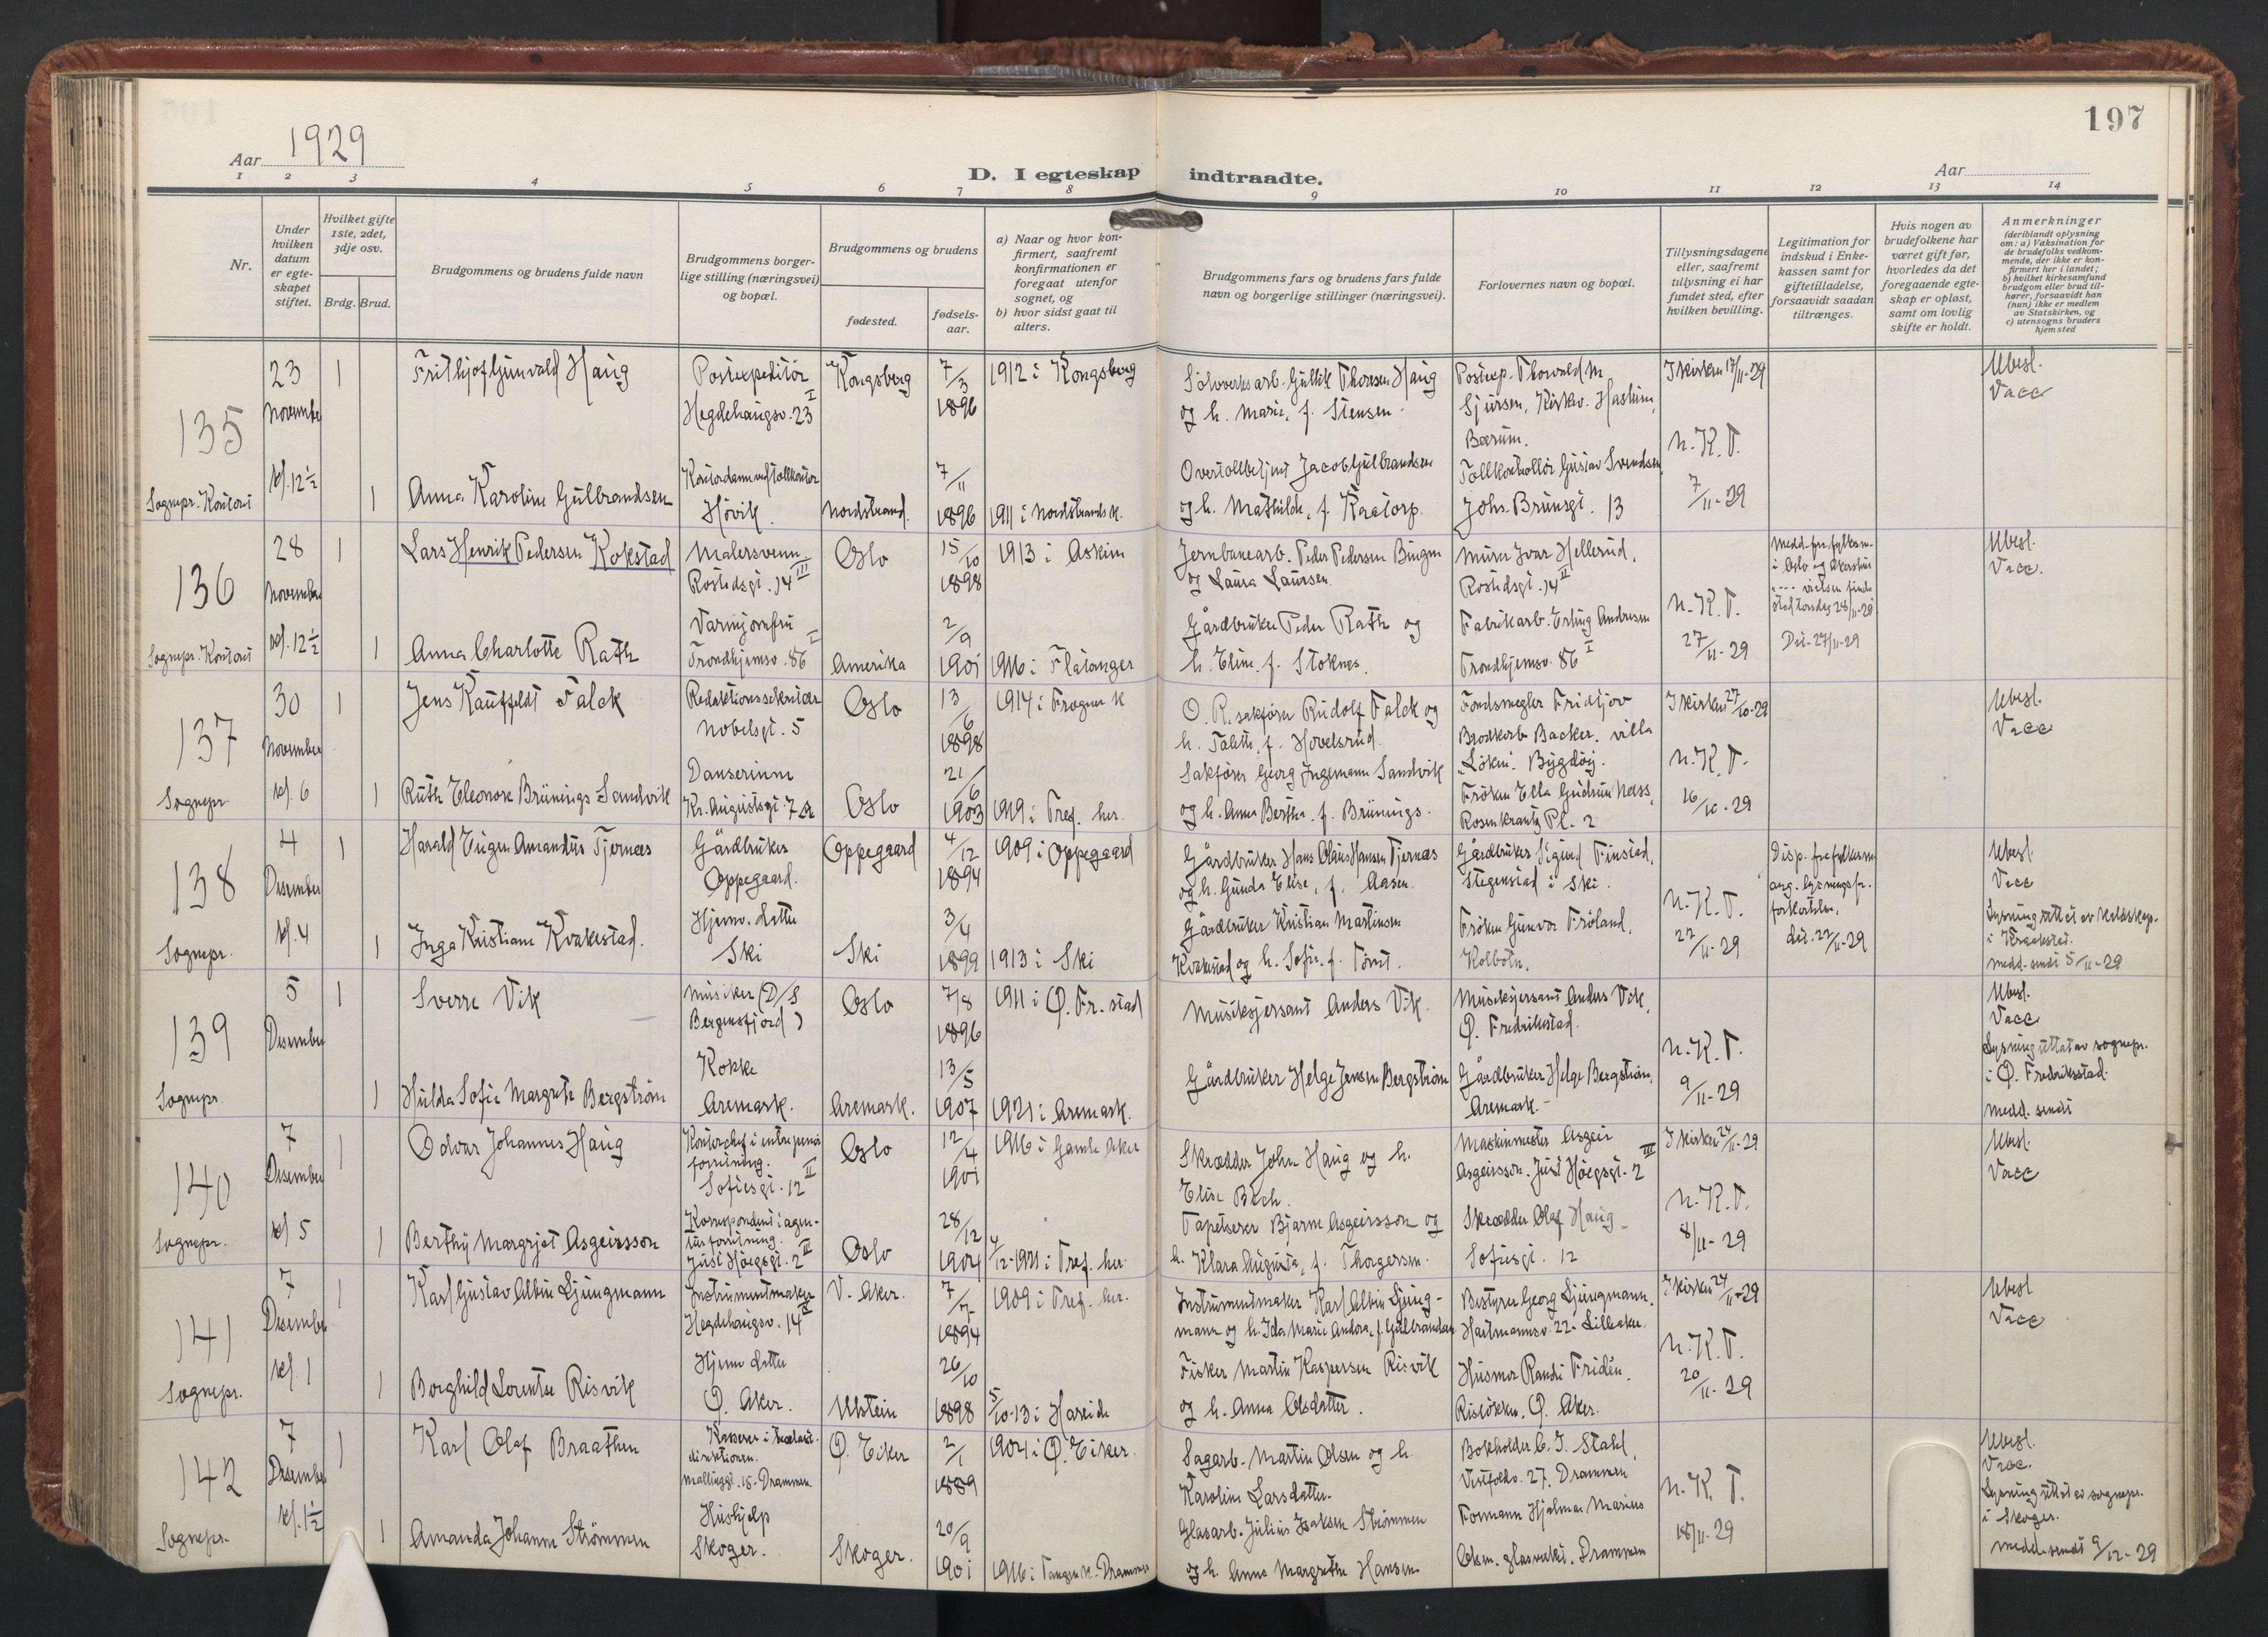 197
Aar 1929
D. I egteskap indtraadte.
Aar
1 2 3 4 5 6 7 8 9 10 11 12 13 14
Nr.
Under hvilken datum er egteskapet stiftet.
Hvilket gifte 1ste, 2det, 3dje osv.
Brdg. Brud.
Brudgommens og brudens fulde navn
Brudgommens borgerlige stilling (næringsvei) og bopæl.
Brudgommens og brudens
fødested.
fødselsaar.
a) Naar og hvor konfirmert, saafremt konfirmationen er foregaat utenfor sognet, og
b) hvor sidst gaat til alters.
Brudgommens fars og brudens fars fulde navn og borgerlige stillinger (næringsvei).
Forlovernes navn og bopæl.
Tillysningsdagene eller, saafremt tillysning ei har fundet sted, efter hvilken bevilling.
Legitimation for indskud i Enkekassen samt for giftetilladelse, forsaavidt saadan tiltrænges.
Hvis nogen av brudefolkene har været gift før, hvorledes da det foregaaende egteskap er opløst, samt om lovlig skifte er holdt.
Anmerkninger
(deriblandt oplysning om: a) Vaksination for de brudefolks vedkommende, der ikke er konfirmert her i landet;
b) hvilket kirkesamfund brudgom eller brud tilhører, forsaavidt han (hun) ikke er medlem av Statskirken, og
c) utensogns bruders hjemsted
135
23 November kl. 12½
Sognepr. Kontort
1 Frithjof Gunvald Haug
Postexpeditør
Hegdehaugsv. 23 I
Kongsberg
7/3 1896
1912 i Kongsberg
Sølvverksarb. Gullik Thoresen Haug
og h. Marie, f. Stensen.
Postexp. Thorvald M.
Sjursen, Kirkev. Haslum,
Bærum.
I kirken 17/11-29
Ubesl.
Vacc
1 Anna Karoline Gulbrandsen
Kontordame ved tollkontor
Høvik.
Nordstrand.
7/11 1896
1911 i Nordstrands k.
Overtollbetjent Jacob Gulbrandsen
og h. Mathilde, f. Kaatorp.
Tollkontrollør Gustav Svendsen,
Johs. Brunsgt. 13
N.K.T.
7/11-29
136
28 November kl. 12½
Sognepr. Kontort
1 Lars Henrik Pedersen Kokstad
Malersvenn
Rostedsgt. 14 III
Oslo
15/10 1898
1913 i Askim
Jernbanearb. Peder Pedersen Bingen
og Laura Laursen.
Murer Ivar Hellerud,
Rostedsgt. 14 II
Medd. fra fylkesm.
i Oslo og Akershus
vielsen finde
sted torsdag 28/11-29
Dat. 27/11-29
Ubesl.
Vacc.
1 Anna Charlotte Rath
Varmjomfru
Trondhjemsv. 86 I
Amerika
2/9 1901
1916 i Flatanger
Gårdbruker Peder Rath og
h. Eline, f. Stoknes.
Fabrikarb. Erling Andresen
Trondhjemsv. 86 I
N.K.T.
27/11-29
137
30 November kl. 6
Sognepr.
1 Jens Kauffeldt Falck
Redaktionssekretær
Nobelsgt. 5
Oslo
13/6 1898
1914 i Frogner k
O.R. sakfører Rudolf Falck og
h. Tabita, f. Hovelsrud.
Fondsmegler Fridtjov
Brodkorb Backer, villa
"Løken" Bygdøy.
I kirken 27/10-29
Ubesl.
Vacc
1 Ruth Eleonore Brünings Sandvik
Danserinne
Kr. Augustsgt. 7 a
Oslo
21/6 1903
1919 i Tref. her.
Sakfører Georg Ingemann Sandvik
og h. Anna Bertha, f. Brünings.
Frøken Ella Gudrun Næss,
Rosenkrantz Pl. 2
N.K.T.
16/10-29
138
4 Desember kl. 4
Sognepr.
1 Harald Eugen Amandus Tjernæs
Gårdbruker
Oppegaard.
Oppegaard
4/12 1894
1909 i Oppegaard
Gårdbruker Hans Olaus Hansen Tjernæs
og h. Gunda Elise, f. Aasen.
Gårdbruker Sigurd Finstad,
Stegenstad i Ski.
Disp. fra fylkesm.
ang. lysningsfr.
forkortelse,
dat. 22/11-29
Ubesl.
Vacc
Lysning uttatt av
i Kraakstad.
medd. sendt 5/11-29
1 Inga Kristiane Kvakestad.
Hjemv. datter
Ski
Ski
3/4 1899
1913 i Ski
Gårdbruker Kristian Martinsen
Kvakestad og h. Sofie, f. Tømt.
Frøken Gunvor Frøland,
Kolbotn.
N.K.T.
22/11-29
139
5 Desember
Sognepr.
1 Sverre Vik
Musiker (D/S
Bergensfjord)
Oslo
7/8 1896
1911 i Ø. Fr.stad
Musiksjersant Anders Vik.
Musiksjersant Anders Vik,
Ø. Fredrikstad.
Ubesl.
Vacc
Lysning uttat av sognepr.
i Ø. Fredriksstad.
medd. sendt
1 Hulda Sofie Margrete Bergstrøm
Kokke
Aremark.
Aremark.
13/5 1907
1921 i Aremark.
Gårdbruker Helge Jensen Bergstrøm
Gårdbruker Helge Bergstrøm,
Aremark.
N.K.T.
9/11-29
140
7 Desember kl 5
Sognepr.
1 Odvar Johannes Haug
Kontorchef i entreprenør
forretning.
Sofiesgt. 12 II
Oslo
12/4 1901
1916 i Gamle Aker
Skrædder John Haug og h.
Elise Bech.
Maskinmester Asgeir
Asgeirsson. Just Høegsgt. 2 III
I kirken 24/11-29
Ubesl.
Vacc
1 Berthy Margrjet Asgeirsson
Korrespondent i agenturforretning.
Just Høegsgt. 2 III
Oslo
28/12 1904
4/12-1921 i Tref. her.
Tapetserer Bjarne Asgeirsson og
h. Klara Augusta, f. Thorgersen.
Skrædder Olaf Haug
Sofiesgt. 12
N.K.T.
8/11-29
141
7 Desember kl. 1
Sognepr.
1 Karl Gustav Albin Ljungmann
Instrumentmaker
Hegdehaugsv. 14 II
V. Aker.
7/7 1894
1909 i Tref. her.
Instrumentmaker Karl Albin Ljungmann
og h. Ida Marie Andora, f. Gulbrandsen
Bestyrer Georg Ljungmann,
Hartmannsv. 22. Lilleaker.
I kirken 24/11-29
Ubesl
Vacc
1 Borghild Lorentse Risvik
Hjemv datter
Ø. Aker.
Ulstein
26/10 1898
5/10-13 i Hareide
Fisker Martin Kaspersen Risvik
og h. Anna Olsdatter.
Husmor Randi Fridén,
Risløkken, Ø. Aker.
N.K.T.
20/11-29
142
7 Desember kl. 1½
Sognepr.
1 Karl Olaf Braathen
Kasserer i
direktionen.
Mallinggt. 15. Drammen.
Ø. Eiker
2/1 1889
1904 i Ø. Eiker.
Sagarb. Martin Olsen og h.
Karoline Larsdatter.
Bokholder C. J. Stahl,
Vestfoldv. 27. Drammen
Ubesl.
Vacc.
Lysning uttat av sognepr.
i Skoger.
medd. sendt 9/12-29
1 Amanda Johanne Strømmen
Hushjelp
Skoger.
Skoger.
20/9 1901
1916 i Tangen k. Drammen
Glasarb. Julius Isaksen Strømmen
og h. Anna Margrethe Hansen
Formann Hjalmar Marius
glasverket. Drammen
N.K.T.
18/11-29